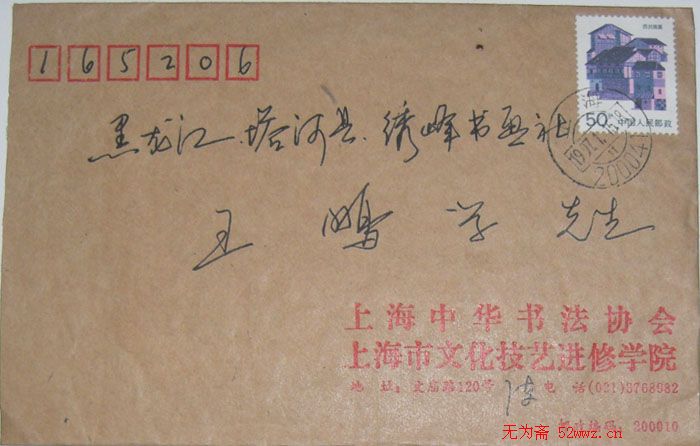 165206
四川民居
50 中国人民邮政
黑龙江.塔河县.绣峰书画社
王鹏学 先生
上海中华书法协会
上海市文化技艺进修学院
地 址：文庙路120号 电 话(021)3768982
邮政编码：200010
无为斋 52wwz.cn